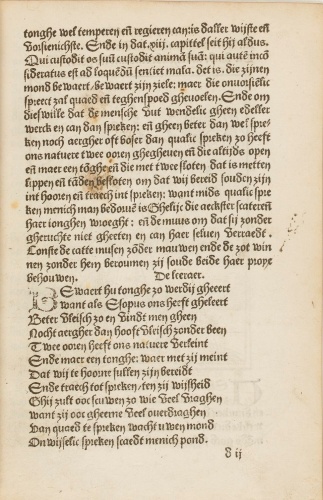 tonghe wel temperen eñ regieren can: is daller wijste eñ
vorsienichste. Ende in dat .xiij. capittel seit hij aldus.
Qui custodit os suũ custodit animã suã: qui autẽ incõ
sideratus est ad loquẽdũ sentiet mala. dat is. die zijnen
mond bewaert / bewaert zijn ziele: maer die onvorsiēlic
spreect zal quaed eñ teghenspoed ghevoelen. Ende om
dies wille dat de mensche uut wendelic gheen edeller
werck en can dan spreken: eñ gheen beter dan wel spre-
ken noch aergher oft boser dan qualic spreken zo heeft
ons natuere twee ooren ghegheven eñ die altijds open
eñ maer een tõghe eñ die met twee sloten dat is metten
lippen eñ tãden besloten om dat wij bereid souden zijn
int hooren eñ traech int spreken: want mids qualic spre
ken menich man bedouē is Ghelijc die aeckster scaterēn
haer ionghen wroeght: eñ de muus om dat sij zonder
gheruchte niet gheeten en can haer selven verraedt.
Conste de catte musen zõder mauwen ende de zot win
nen zonder hem beroumen zij soude beide haer proye
behouwen. De leeraer.
Bewaert hu tonghe zo werdij gheeert
want als Esopus ons heeft gheleert
Beter vleisch zo en vindt men gheen
Nocht aergher dan hooft vleisch zonder been
Twee ooren heeft ons natuere verleint
Ende maer een tonghe: waer met zij meint
Dat wij te hoorne sullen zijn bereidt
Ende traech tot spreken / ten zij wijsheid
Ghij zult ooc scuwen zo wie veel vraghen
want zij ooc gheerne veel overdraghen
van quaed te spreken wacht u wen mond
Onwijselic spreken scaedt menich pond.
d ij